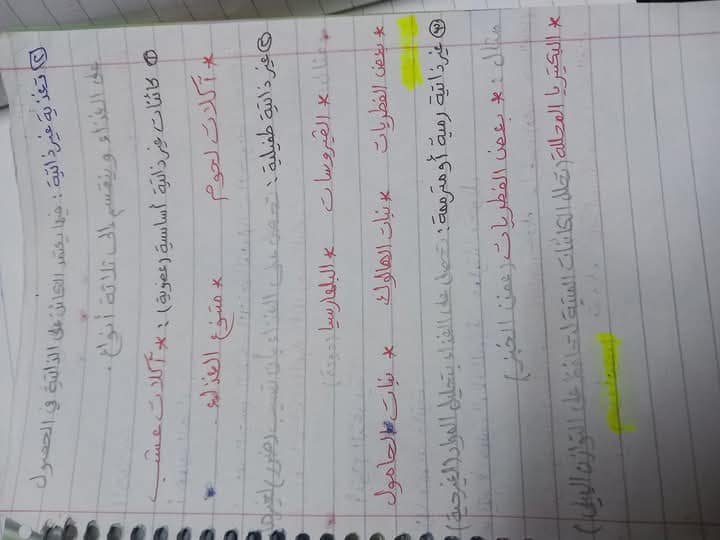 ② تغذية غير ذاتية: فيها يعتمد الكائن على الذاتية في الحصول
على الغذاء وينقسم إلى ثلاثة أنواع.
① كائنات غير ذاتية أساسية (عضوية): * آكلات عشب
* آكلات لحوم * متنوع الغذاء.
② غير ذاتية طفيلية: تحصل على الغذاء بأن تسبب (ضرر) لغيرها
مثال: * الفيروسات * البلهارسيا (دودة)
* بعض الفطريات * نبات الهالوك * نبات الحامول
③ غير ذاتية رمية أو مترممة: تحصل على الغذاء بتحليل المواد (الغير حية)
مثال: * بعض الفطريات (عفن الخبز)
* البكتيريا المحللة (تحلل الكائنات الميتة لتحافظ على التوازن البيئي)